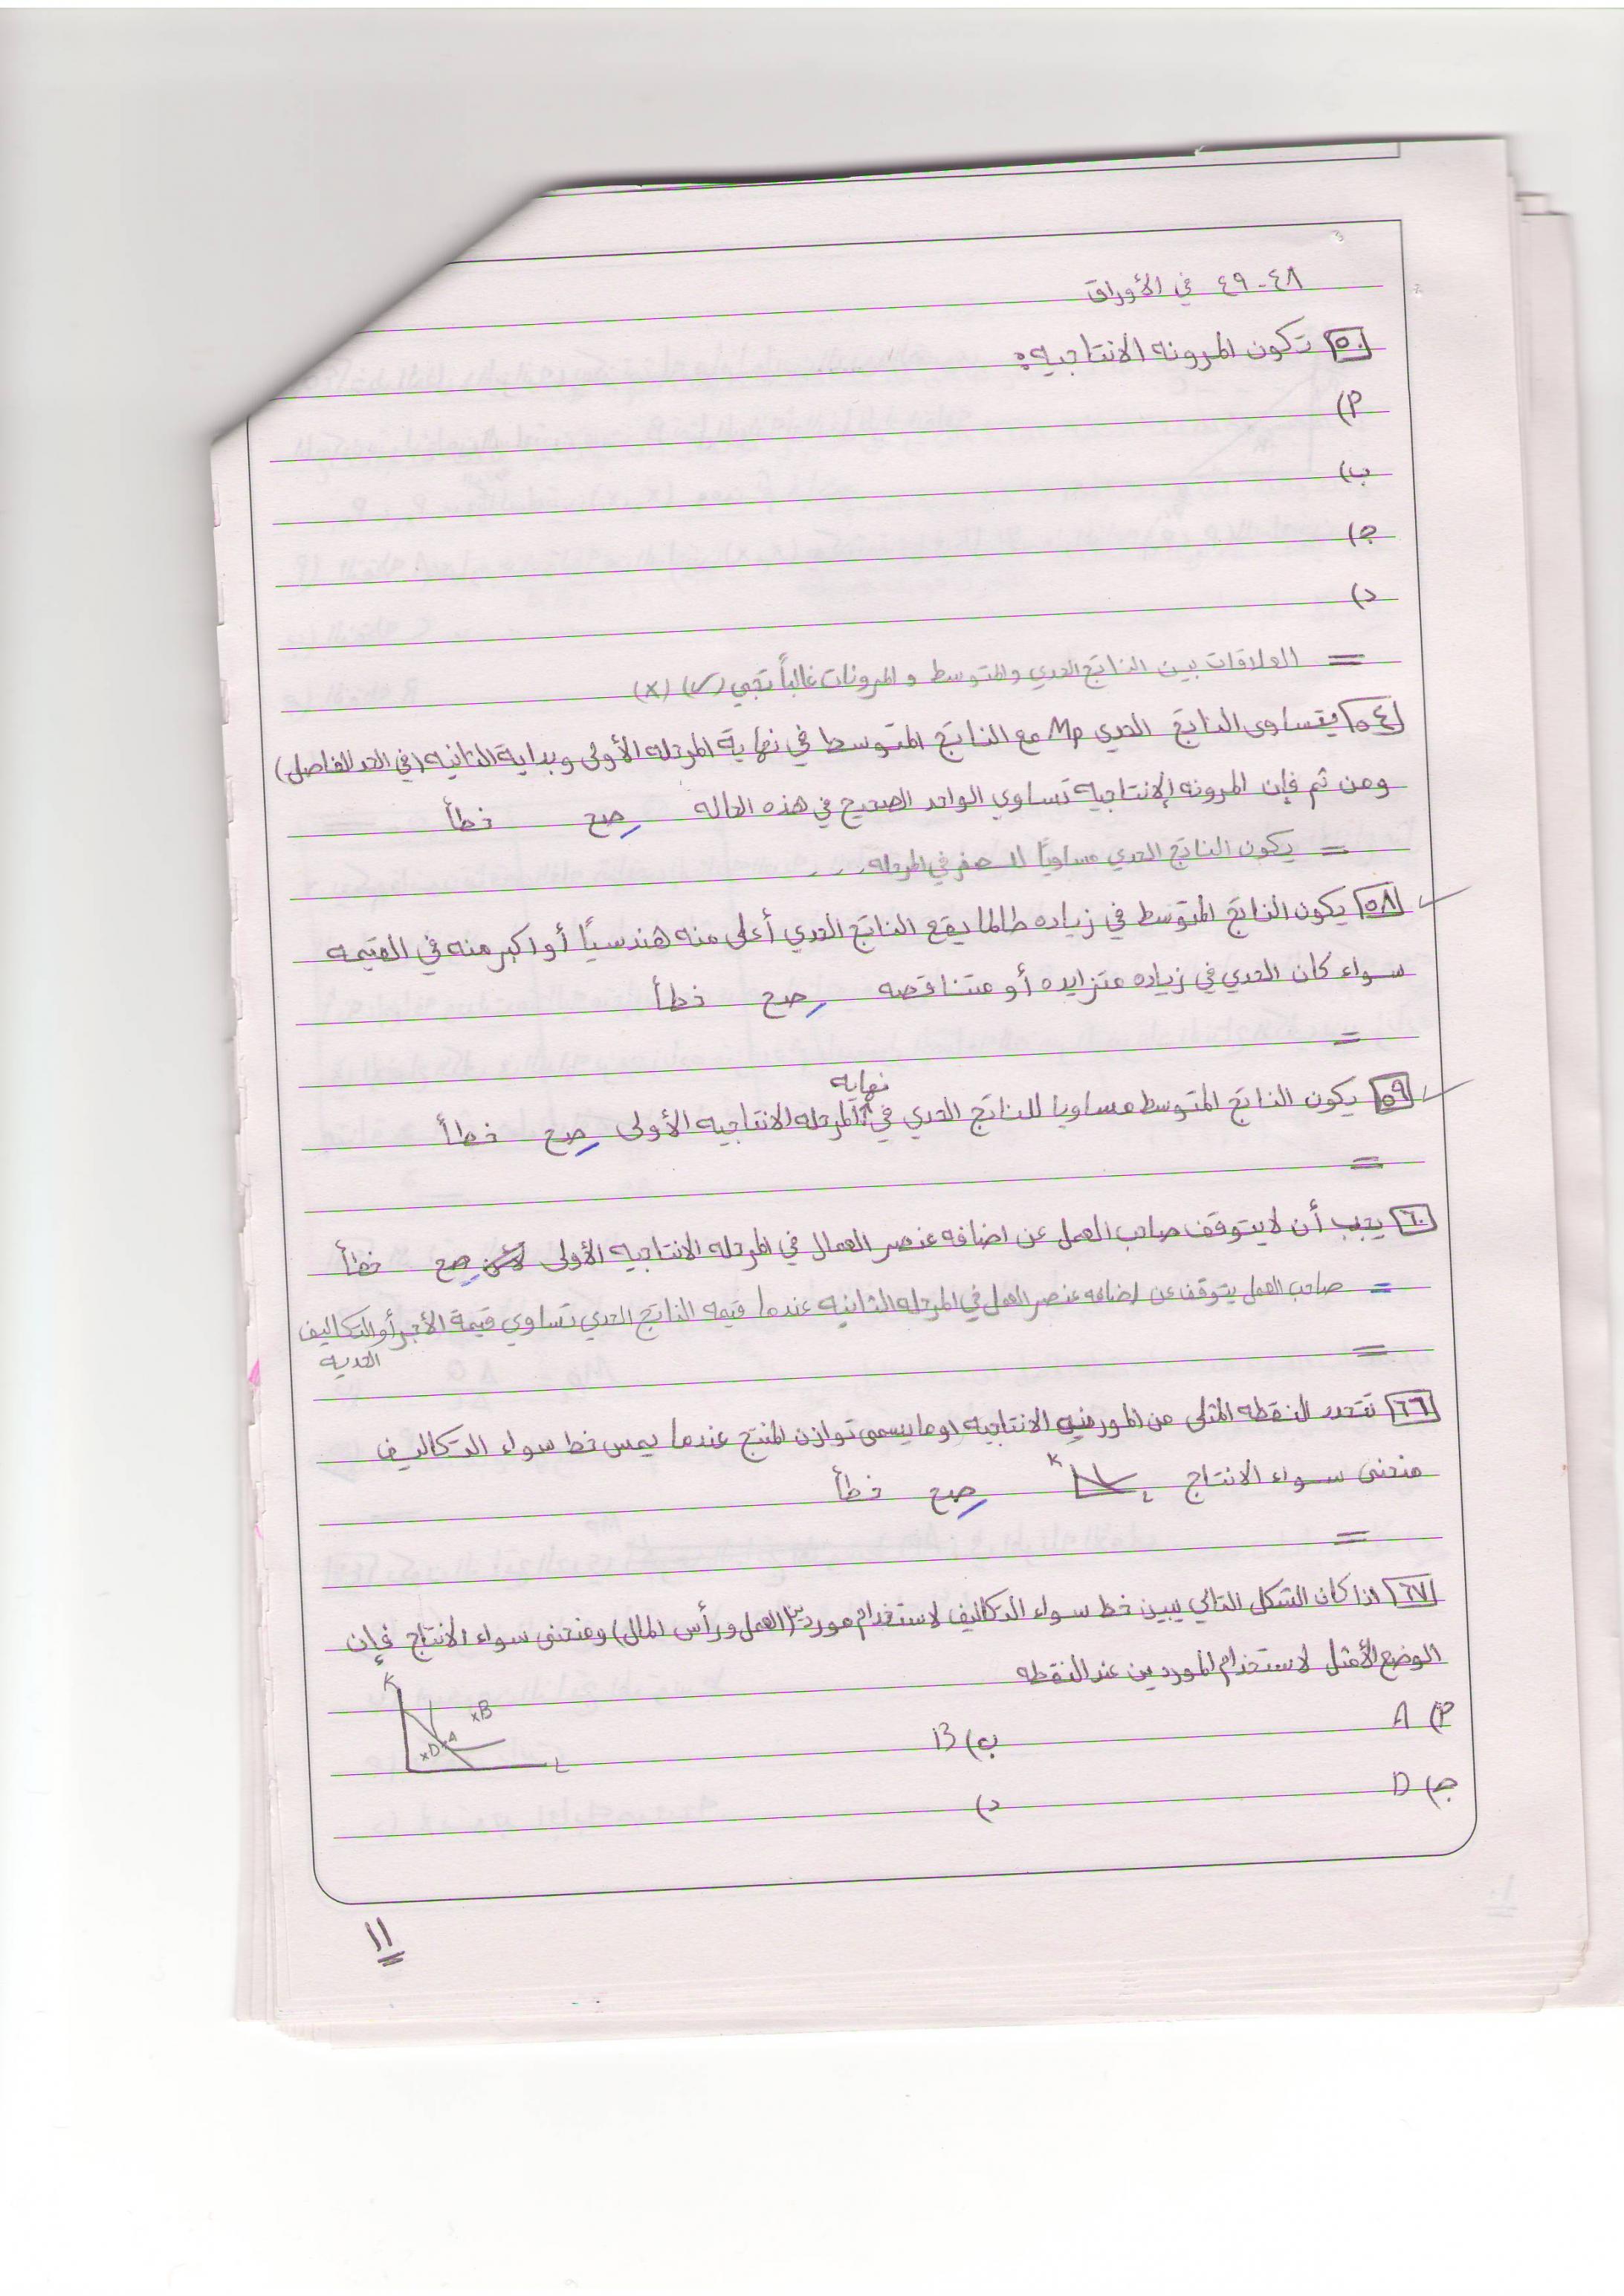 ٤٨-٤٩ في الأوراق
٥٠ تكون المرونه الانتاجيه:
أ)
ب)
ج)
د)
= العلاقات بين الناتج الحدي والمتوسط و المرونات غالباً تجي (✓) (x)
٥٤ يتساوى الناتج الحدي Mp مع الناتج المتوسط في نهاية المرحله الأولى وبداية الثانيه (في الحد الفاصل)
ومن ثم فإن المرونه الإنتاجيه تساوي الواحد الصحيح في هذه الحاله صح خطأ
= يكون الناتج الحدي مساوياً لـ صفر في المرحله . . .
٥٨ يكون الناتج المتوسط في زياده طالما يقع الناتج الحدي أعلى منه هندسياً أو اكبر منه في القيمه
سواء كان الحدي في زياده متزايده أو متناقصه صح خطأ
=
٥٩ يكون الناتج المتوسط مساويا للناتج الحدي في نهايه المرحله الانتاجيه الأولى صح خطأ
=
٦٠ يجب أن لا يتوقف صاحب العمل عن اضافه عنصر العمال في المرحله الانتاجيه الأولى صح خطأ
= صاحب العمل يتوقف عن إضافه عنصر العمل في المرحله الثانيه عندما قيمه الناتج الحدي تساوي قيمة الأجر أو التكاليف
الحديه
=
٦٦ تتحدد النقطه المثلى من الموردين الانتاجيه او ما يسمى توازن المنتج عندما يمس خط سواء التكاليف
منحنى سواء الانتاج K L صح خطأ
=
٦٧ اذا كان الشكل التالي يبين خط سواء التكاليف لاستخدام موردين (العمل ورأس المال) ومنحنى سواء الانتاج فإن
الوضع الأمثل لاستخدام الموردين عند النقطه
K
xB
أ) A ب) B
xD xA
L
ج) D د)
١١